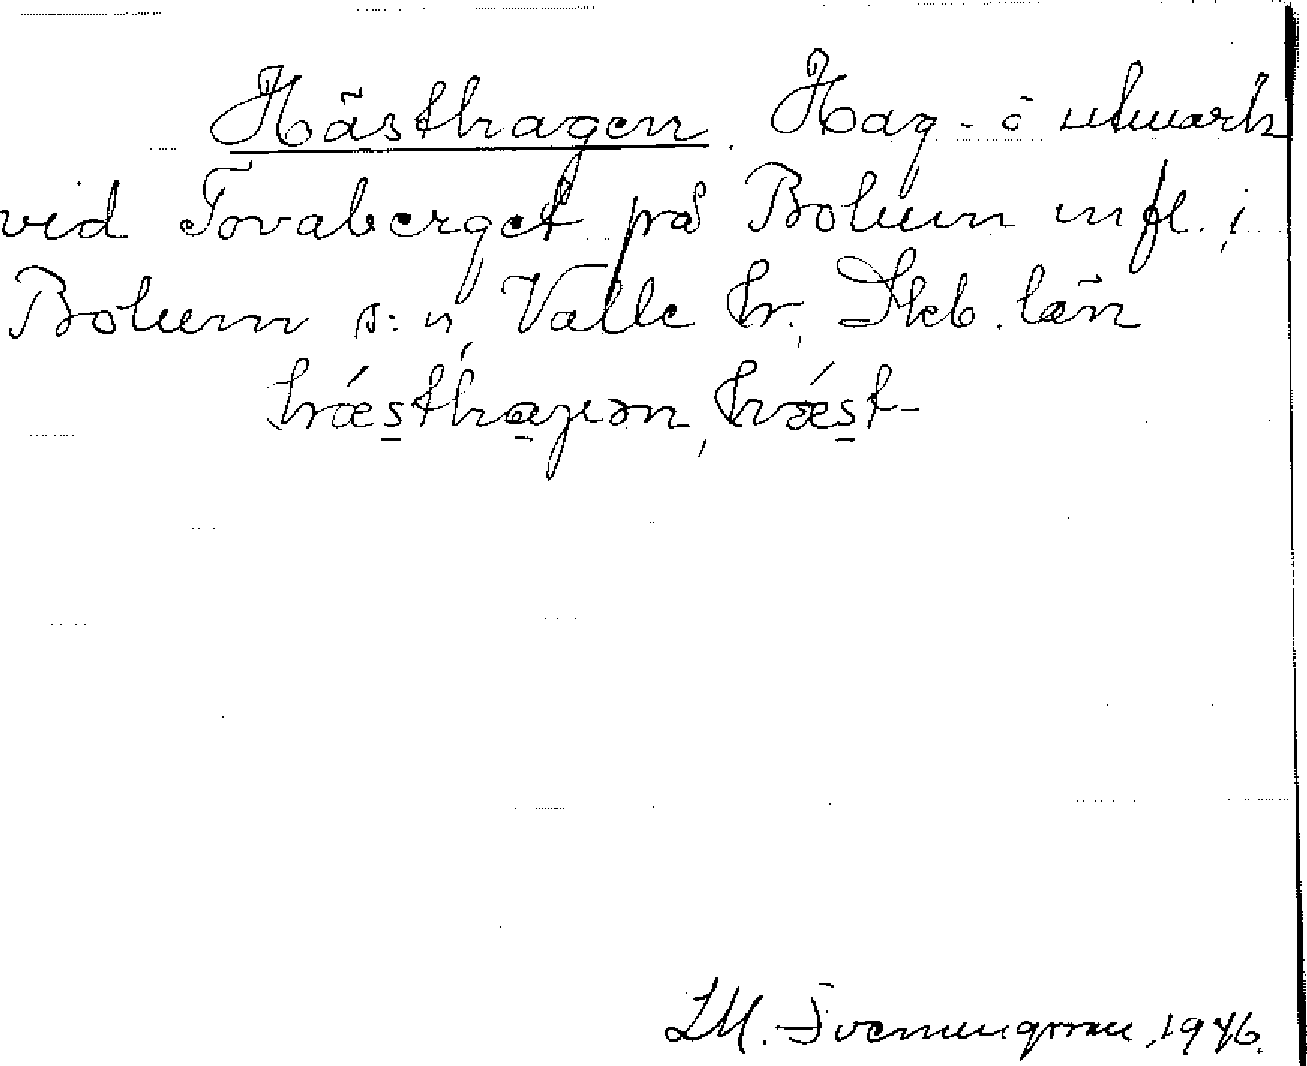 Hästhagen. Hag- o utmark
vid Tovaberget på Bolum m fl. i
Bolum s:n, Valle hr, Skb. län
hǽsthagən, hǽst-
LM. Svenungsson, 1946.